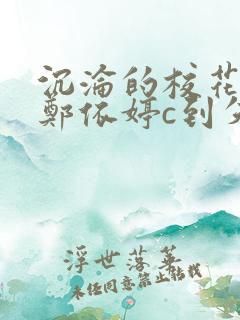 沉淪的校花
鄭依婷c到失
浮世落華
未经同意禁止转载